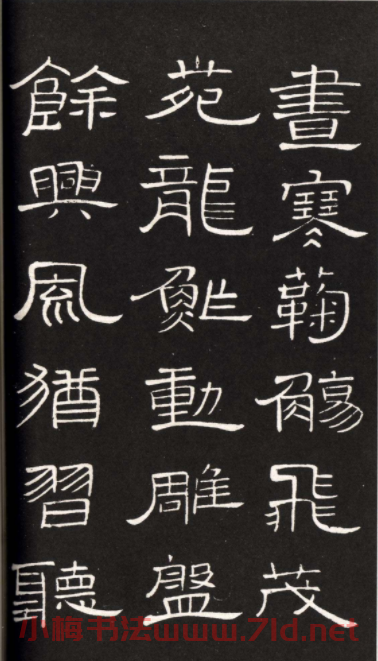 晝寒鞠觴飛茂
苑龍鮓動雕盤
餘興風猶習聽
小梅书法www.7ld.net